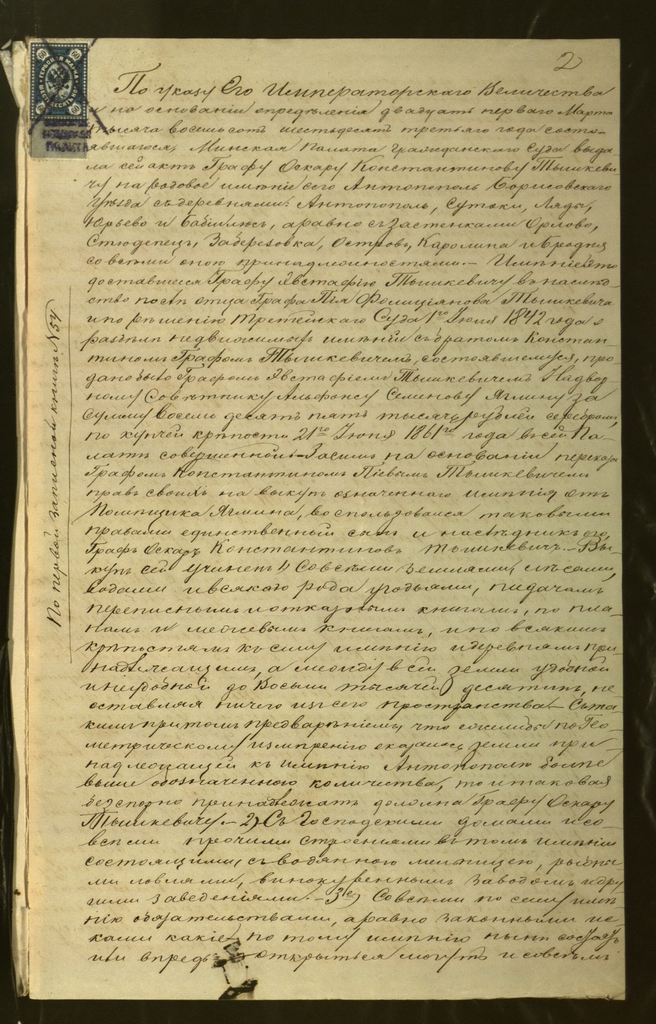 2
По указу Его Императорскаго Величества
и на основаніи опредѣленія двадцать перваго Марта
тысяча восемьсотъ шестьдесятъ третьяго года состо-
явшагося, Минская Палата Гражданскаго Суда выда-
ла сей актъ Графу Оскару Константинову Тышкеви-
чу на родовое имѣніе его Антонополь Борисовскаго
уѣзда съ деревнями: Антонополь, Сутоки, Ляды,
Юрьево и Бабій лѣсъ, а равно съ застенками Орлово,
Студенецъ, Забрезовка, Островъ, Каролина и Бродня
со всѣми оною принадлежностями.— Имѣніе это
доставшееся Графу Явстафію Тышкевичу въ наслѣд-
ство послѣ отца Графа Пія Фелиціянова Тышкевича
и по рѣшенію Третейскаго Суда 1го Іюля 1842 года о
раздѣлѣ недвижимыхъ имѣній съ братомъ Констан-
тиномъ Графомъ Тышкевичемъ, состоявшемуся, про-
дано было Графомъ Явстафіемъ Тышкевичемъ Надвор-
ному Совѣтнику Альфонсу Семенову Ячмину за
сумму восемьдесятъ пять тысячъ рублей серебромъ,
по купчей крѣпости 21го Іюня 1861го года въ сей Па-
латѣ совершенной.— Засимъ на основаніи
Графомъ Константиномъ Піевымъ Тышкевичемъ
правъ своихъ на выкупъ означеннаго имѣнія отъ
Помѣщика Ячмина, воспользовался таковыми
правами единственный сынъ и наслѣдникъ его,
Графъ Оскаръ Константиновъ Тышкевичъ.— Вы-
купъ сей учиненъ 1, Со всѣми землями, лѣсами,
водами и всякаго рода угодьями,
переписнымъ и отказнымъ книгамъ, по пла-
намъ и межевымъ книгамъ, и по всякимъ
крѣпостямъ къ сему имѣнію и деревнямъ при-
надлежащимъ, а между всей земли удобной
и неудобной до восьми тысячей десятинъ, не
оставляя ничего изъ сего пространства— Съ та-
кимъ притомъ предвареніемъ, что ежелибъ по Гео-
метрическому измѣренію оказалось земли при-
надлежащей къ имѣнію Антонополю болѣе
выше обозначеннаго количества, то и таковая
безспорно принадлежать должна Графу Оскару
Тышкевичу.— 2, Съ Господскими домами и со
всѣми прочими строеніями въ томъ имѣніи
состоящими, съ водяною мельницею, рыбны-
ми ловлями, винокуреннымъ заводомъ и дру-
гими заведеніями.— 3е, Со всѣми по сему имѣ-
нію обязательствами, а равно законными ис-
ками какіе по тому имѣнію нынѣ состоятъ
или впредь открыться могутъ и совсѣмъ
По первой записной книгѣ N 54